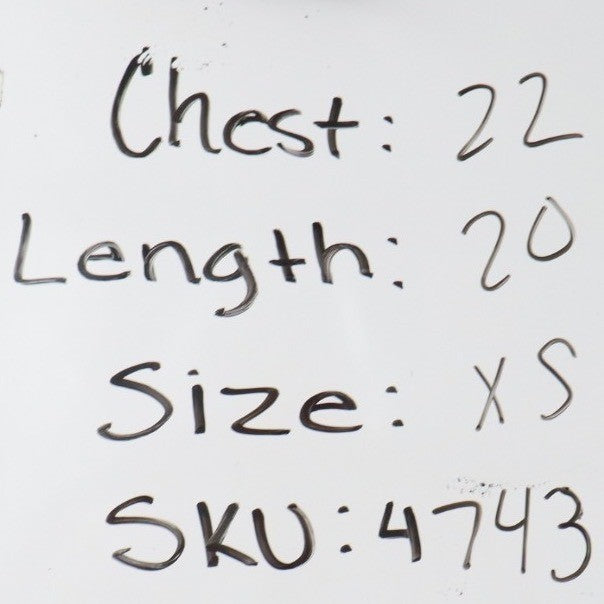 Chest: 22
Length: 20
Size: XS
SKU: 4743